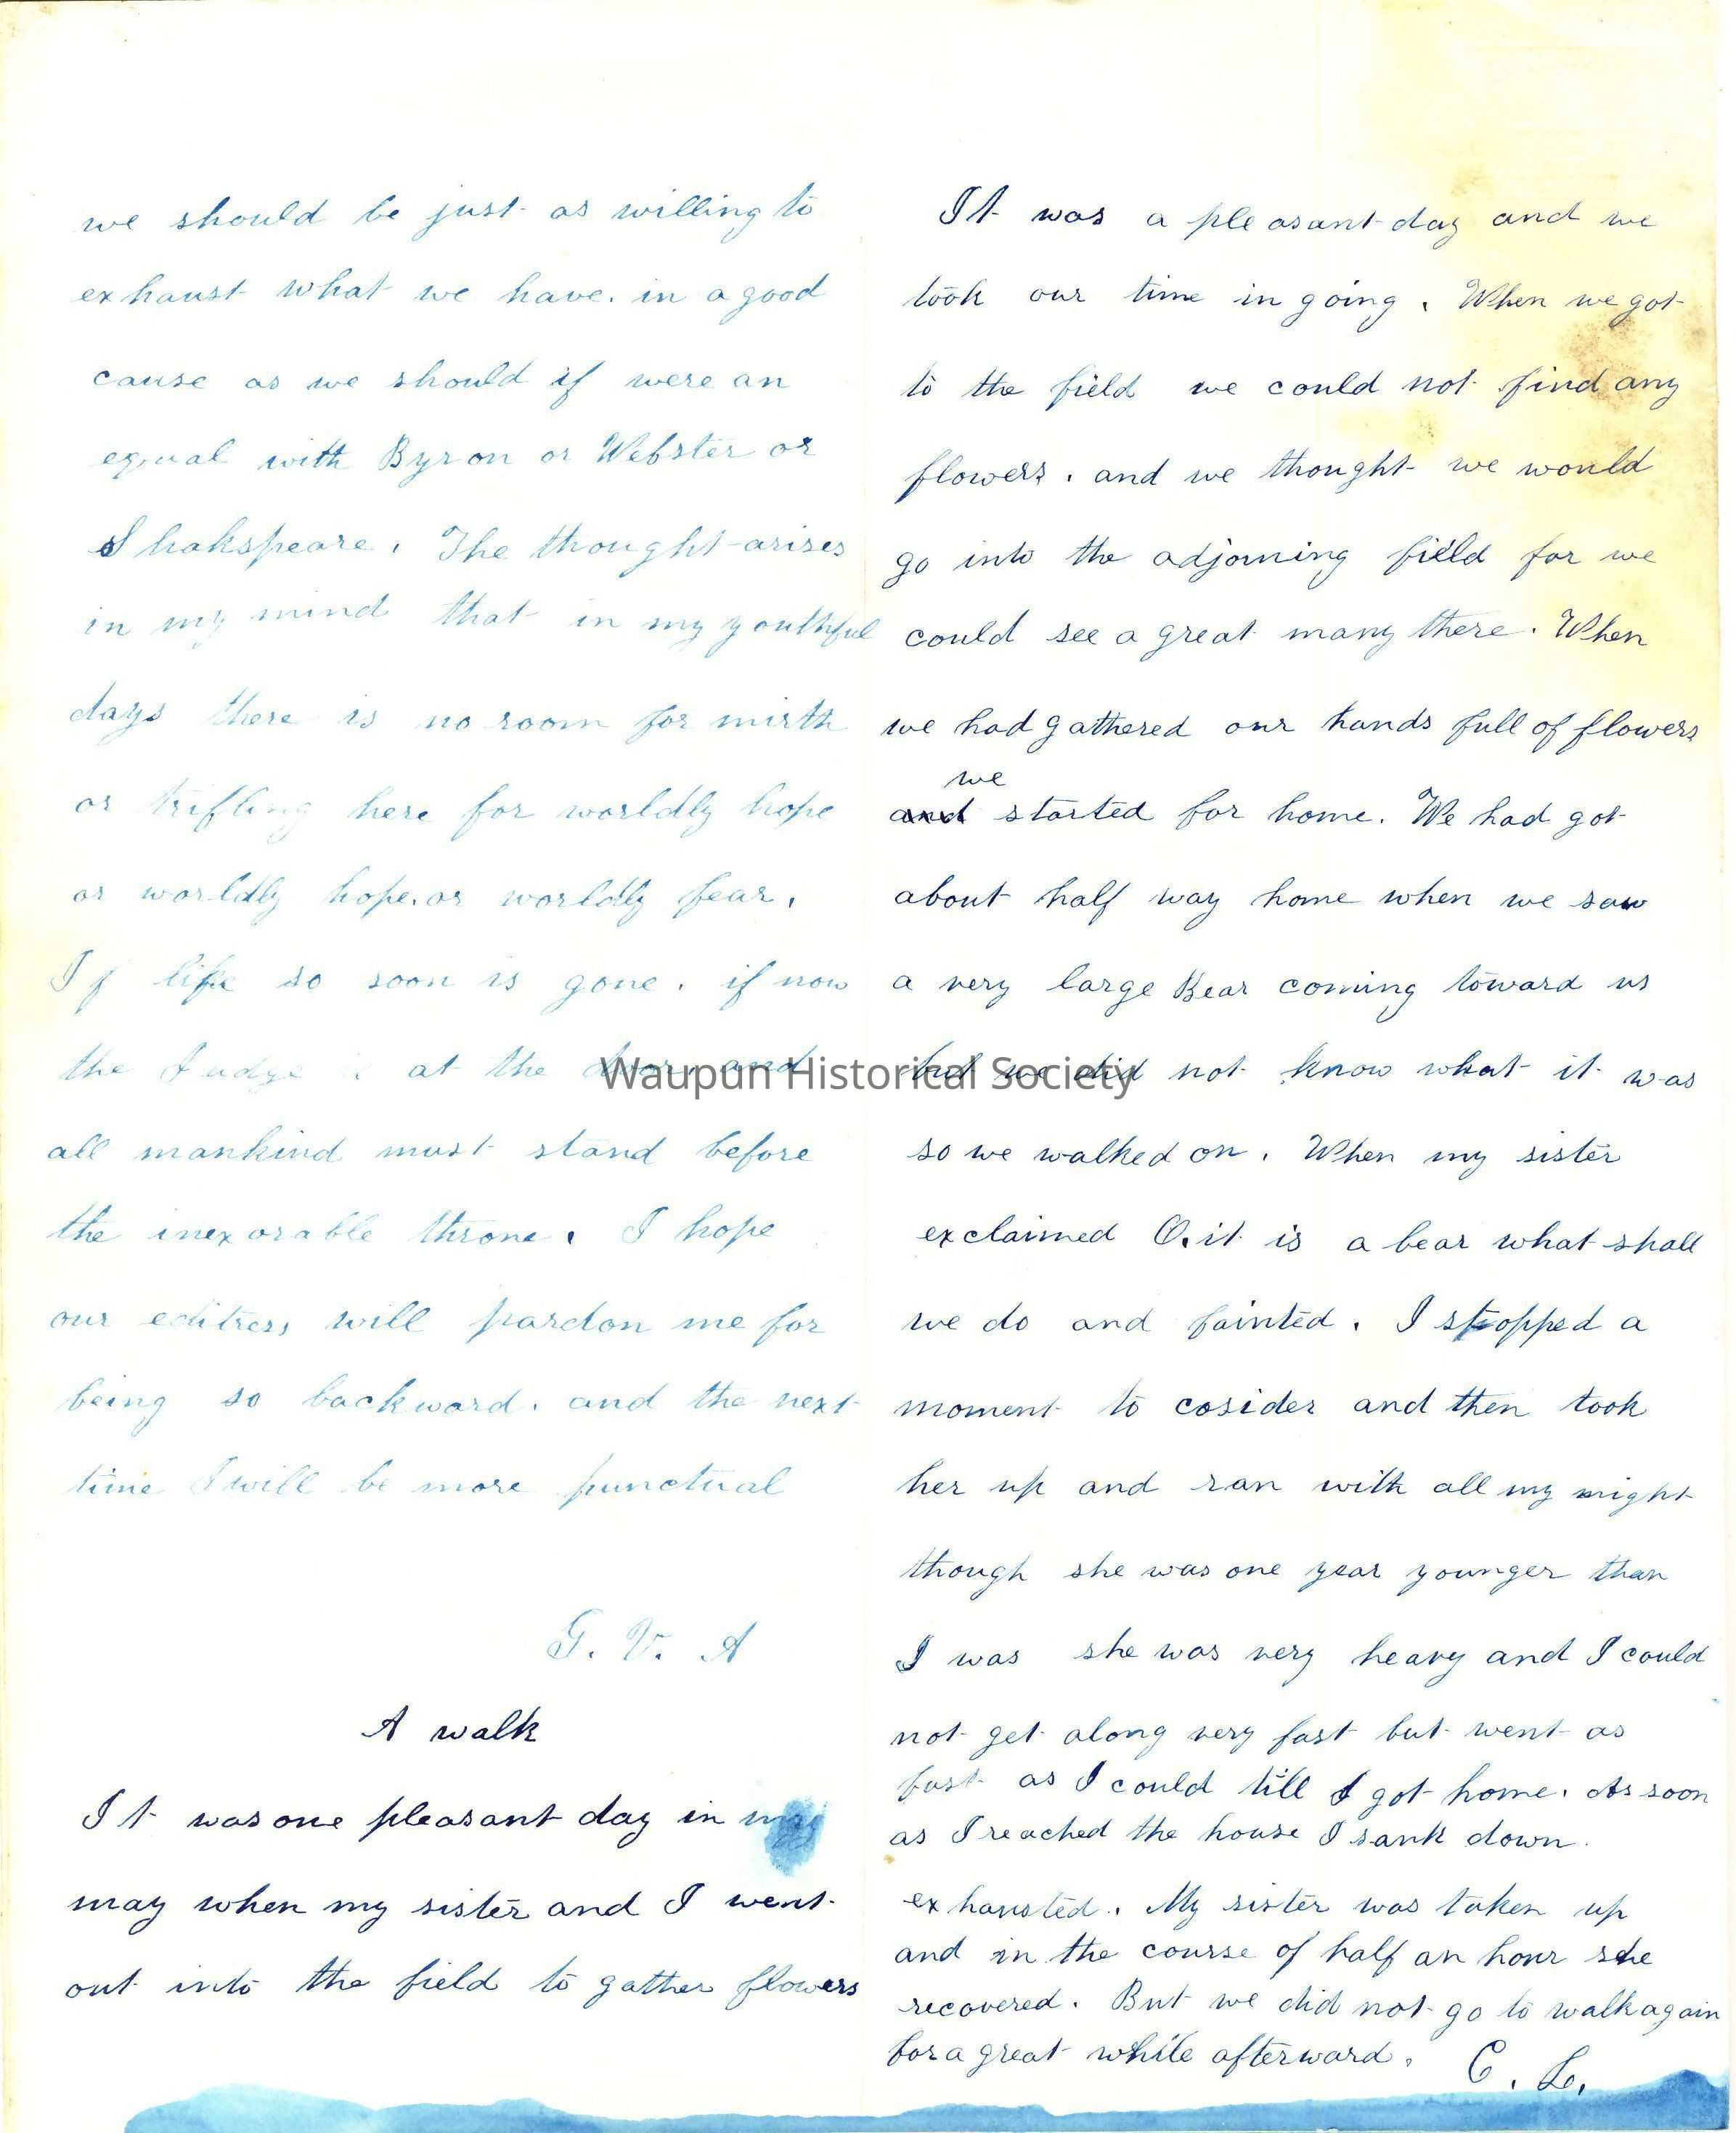 we should be just as willing to
exhaust what we have. in a good
cause as we should if were an
equal with Byron or Webster or
Shakspeare. The thought arises
in my mind that in my youthful
days there is no room for mirth
or trifling here for worldly hope
or worldly hope. or worldly fear.
If life so soon is gone. if now
the Judge is at the door. and
all mankind must stand before
the inexorable throne. I hope
our editress will pardon me for
being so backward. and the next
time I will be more punctual
G. V. A
A walk
It was one pleasant day in may
may when my sister and I went
out into the field to gather flowers
It was a pleasant day and we
took our time in going. When we got
to the field we could not find any
flowers. and we thought we would
go into the adjoining field for we
could see a great many there. When
we had gathered our hands full of flowers
we
and started for home. We had got
about half way home when we saw
a very large Bear coming toward us
but we did not know what it was
so we walked on. When my sister
exclaimed O. it is a bear what shall
we do and fainted. I stopped a
moment to cosider and then took
her up and ran with all my might
though she was one year younger than
I was she was very heavy and I could
not get along very fast but went as
fast as I could till I got home. As soon
as I reached the house I sank down.
exhausted. My sister was taken up
and in the course of half an hour she
recovered. But we did not go to walk again
for a great while afterward. C. L.
Waupun Historical Society